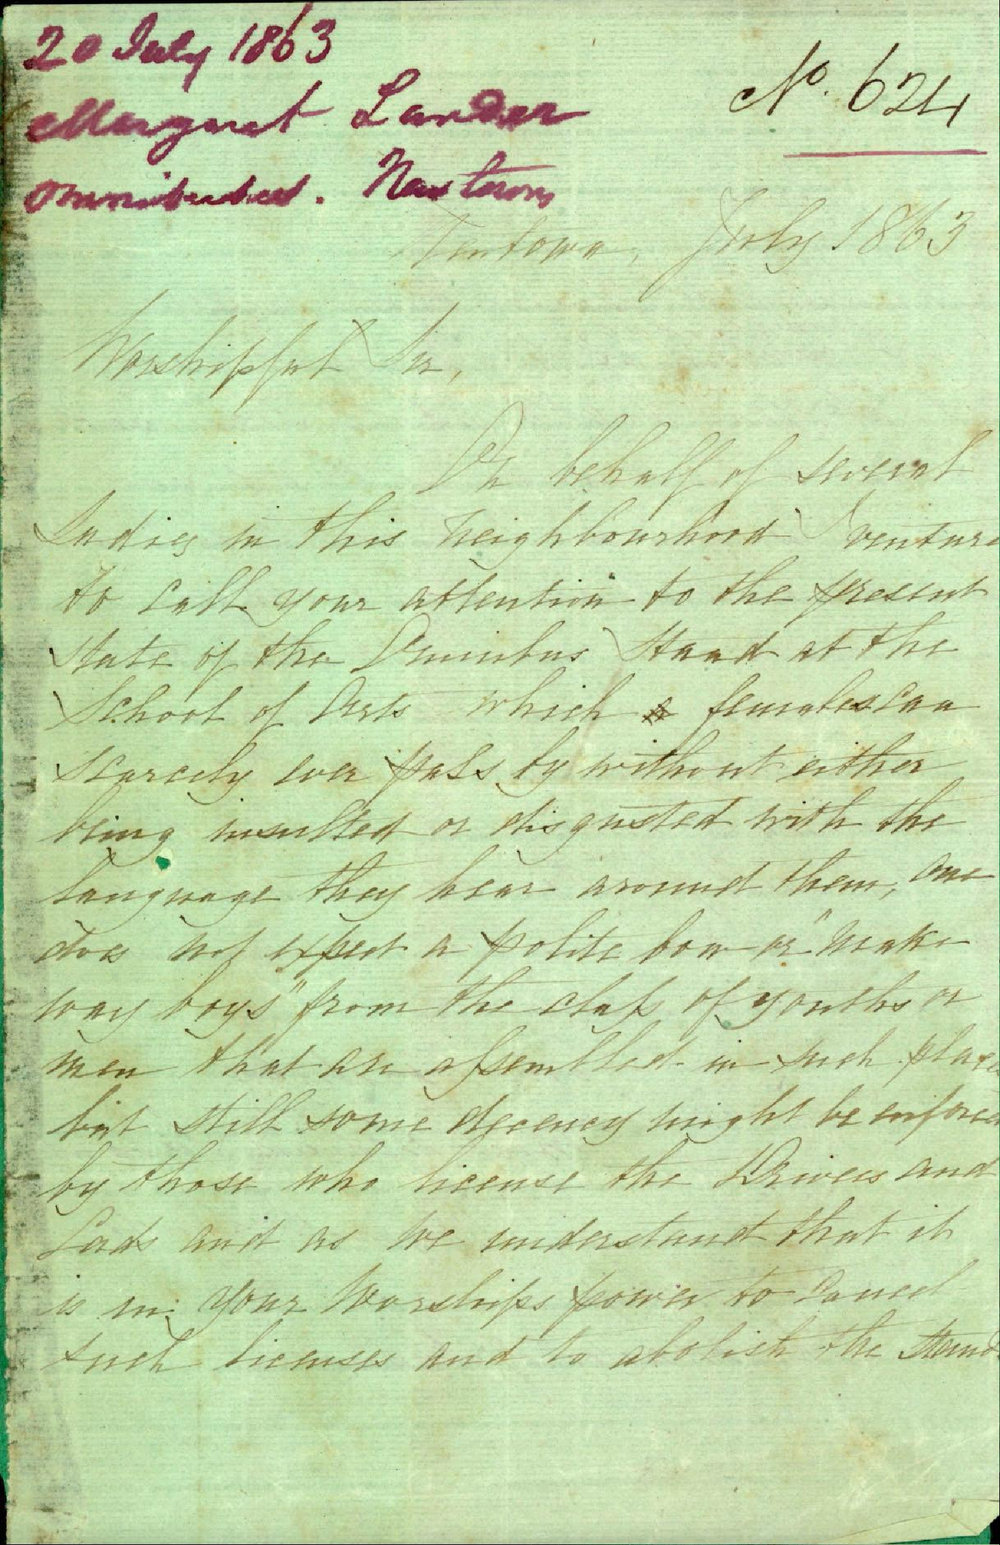 20 July 1863
Margaret Lander
Omnibuses. Newtown
No. 624
Newtown, July 1863
Worshipful Sir,
On behalf of several
Ladies in this neighbourhood I venture
to call your attention to the present
state of the Omnibus Stand at the
School of Arts which females can
scarcely ever pass by without either
being insulted or disgusted with the
language they hear around them, one
does not expect a polite bow or "make
way boys" from the class of youths or
men that are assembled in such places
but still some decency might be enforced
by those who license the Drivers and
Cads and as we understand that it
is in your Worships power to cancel
such licenses and to abolish the Stand